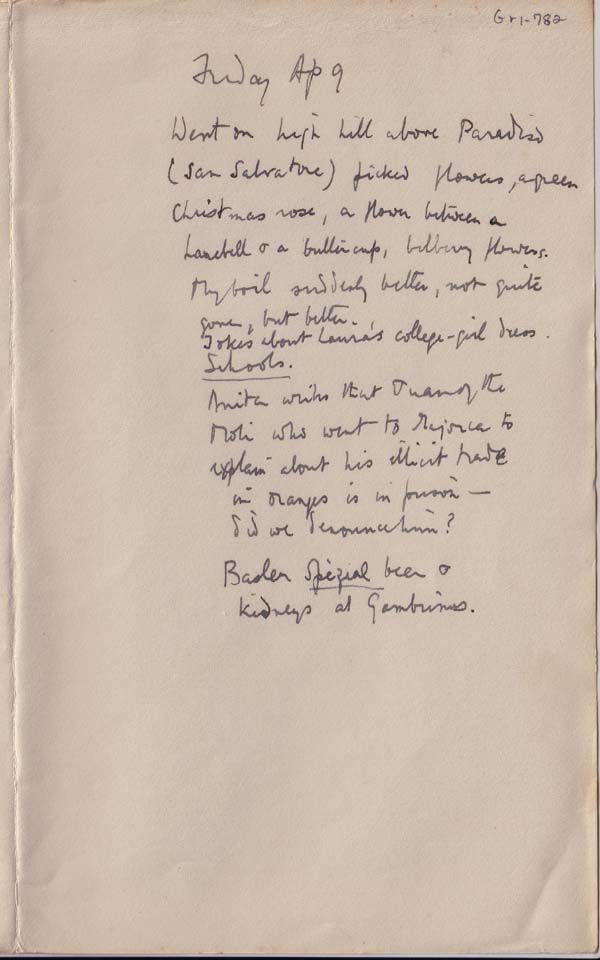 Gr1-782
Friday Ap 9
Went on high hill above Paradiso
(San Salvatore) picked flowers, a green
Christmas rose, a flower between a
harebell & a buttercup, bilberry flowers.
My boil suddenly better, not quite
gone, but better.
Jokes about Laura's college-girl dress.
Schools.
Anita writes that Juan of the
Moli who went to Majorca to
explain about his illicit trade
in oranges is in prison —
did we denounce him?
Basler Spezial beer &
kidneys at Gambrinus.